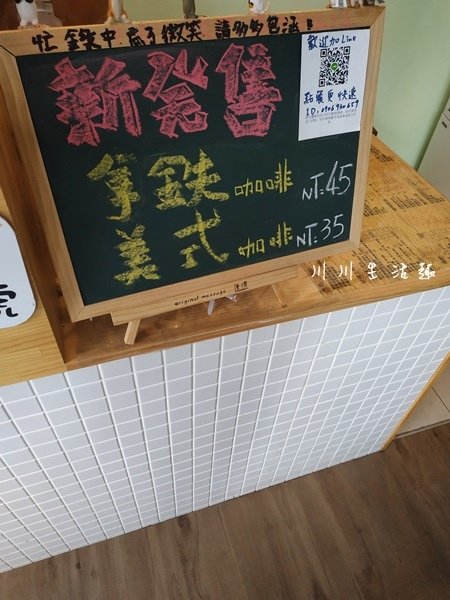 忙錄中 忘了微笑 請多多包涵
歡迎加Line
點餐更快速
ID:0906960659
新発售
拿鐵咖啡 NT:45
美式咖啡 NT:35
川川生活趣
original message
虎